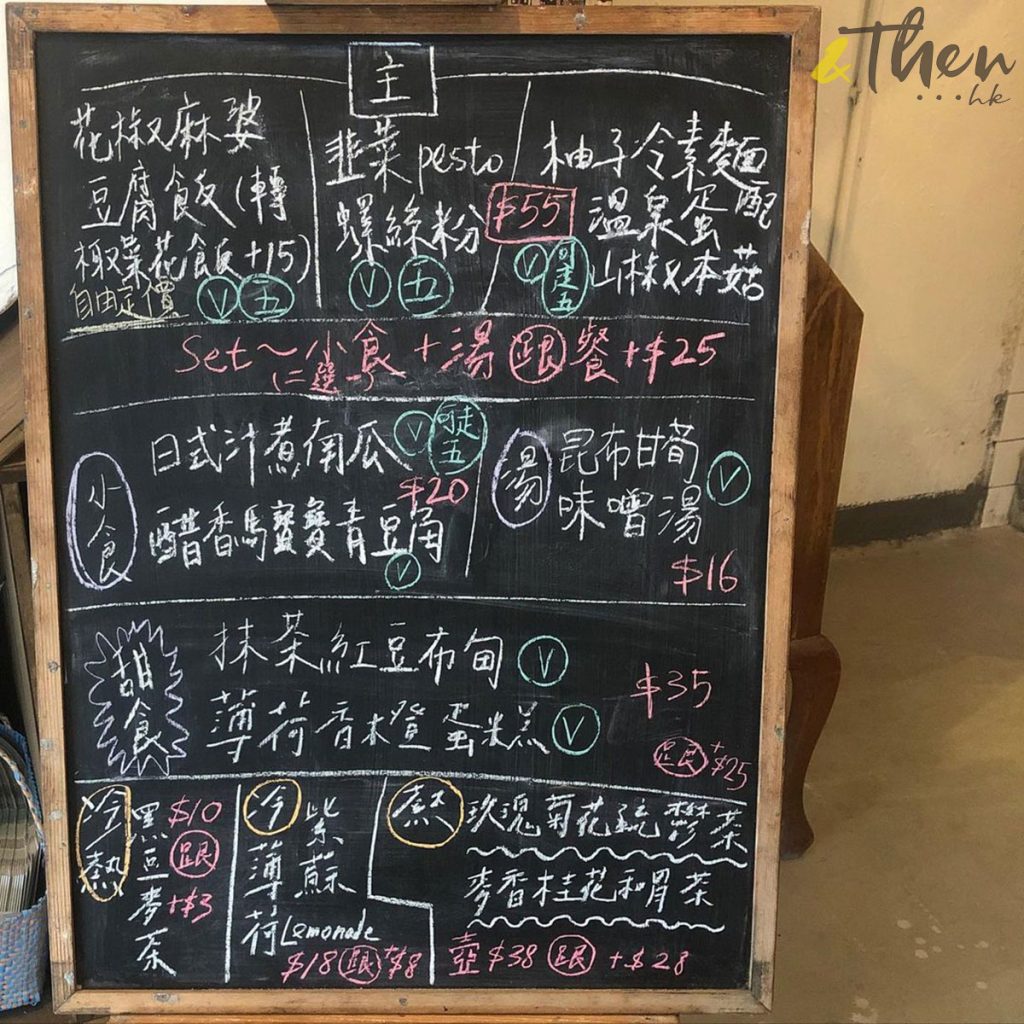 &Then
...hk
主
花椒麻婆
豆腐飯(轉
椰菜花飯+15)
自由定價 V 五
韮菜pesto
螺絲粉
V 五
$55
柚子冷素麵
溫泉蛋配
山椒本菇
V 可走五
Set~小食+湯 跟 餐+$25
(二選一)
小食
日式汁煮南瓜 V 可走五
$20
醋香馬寶寶青豆角
V
湯
昆布甘荀
味噌湯
V
$16
甜食
抹茶紅豆布甸 V
薄荷香橙蛋糕 V
$35
跟 +$25
冷熱
黑豆麥茶
$10
跟
+$3
冷
紫蘇
薄荷Lemonade
$18 跟 +$8
熱
玫瑰菊花疏鬱茶
麥香桂花和胃茶
壺 $38 跟 +$28